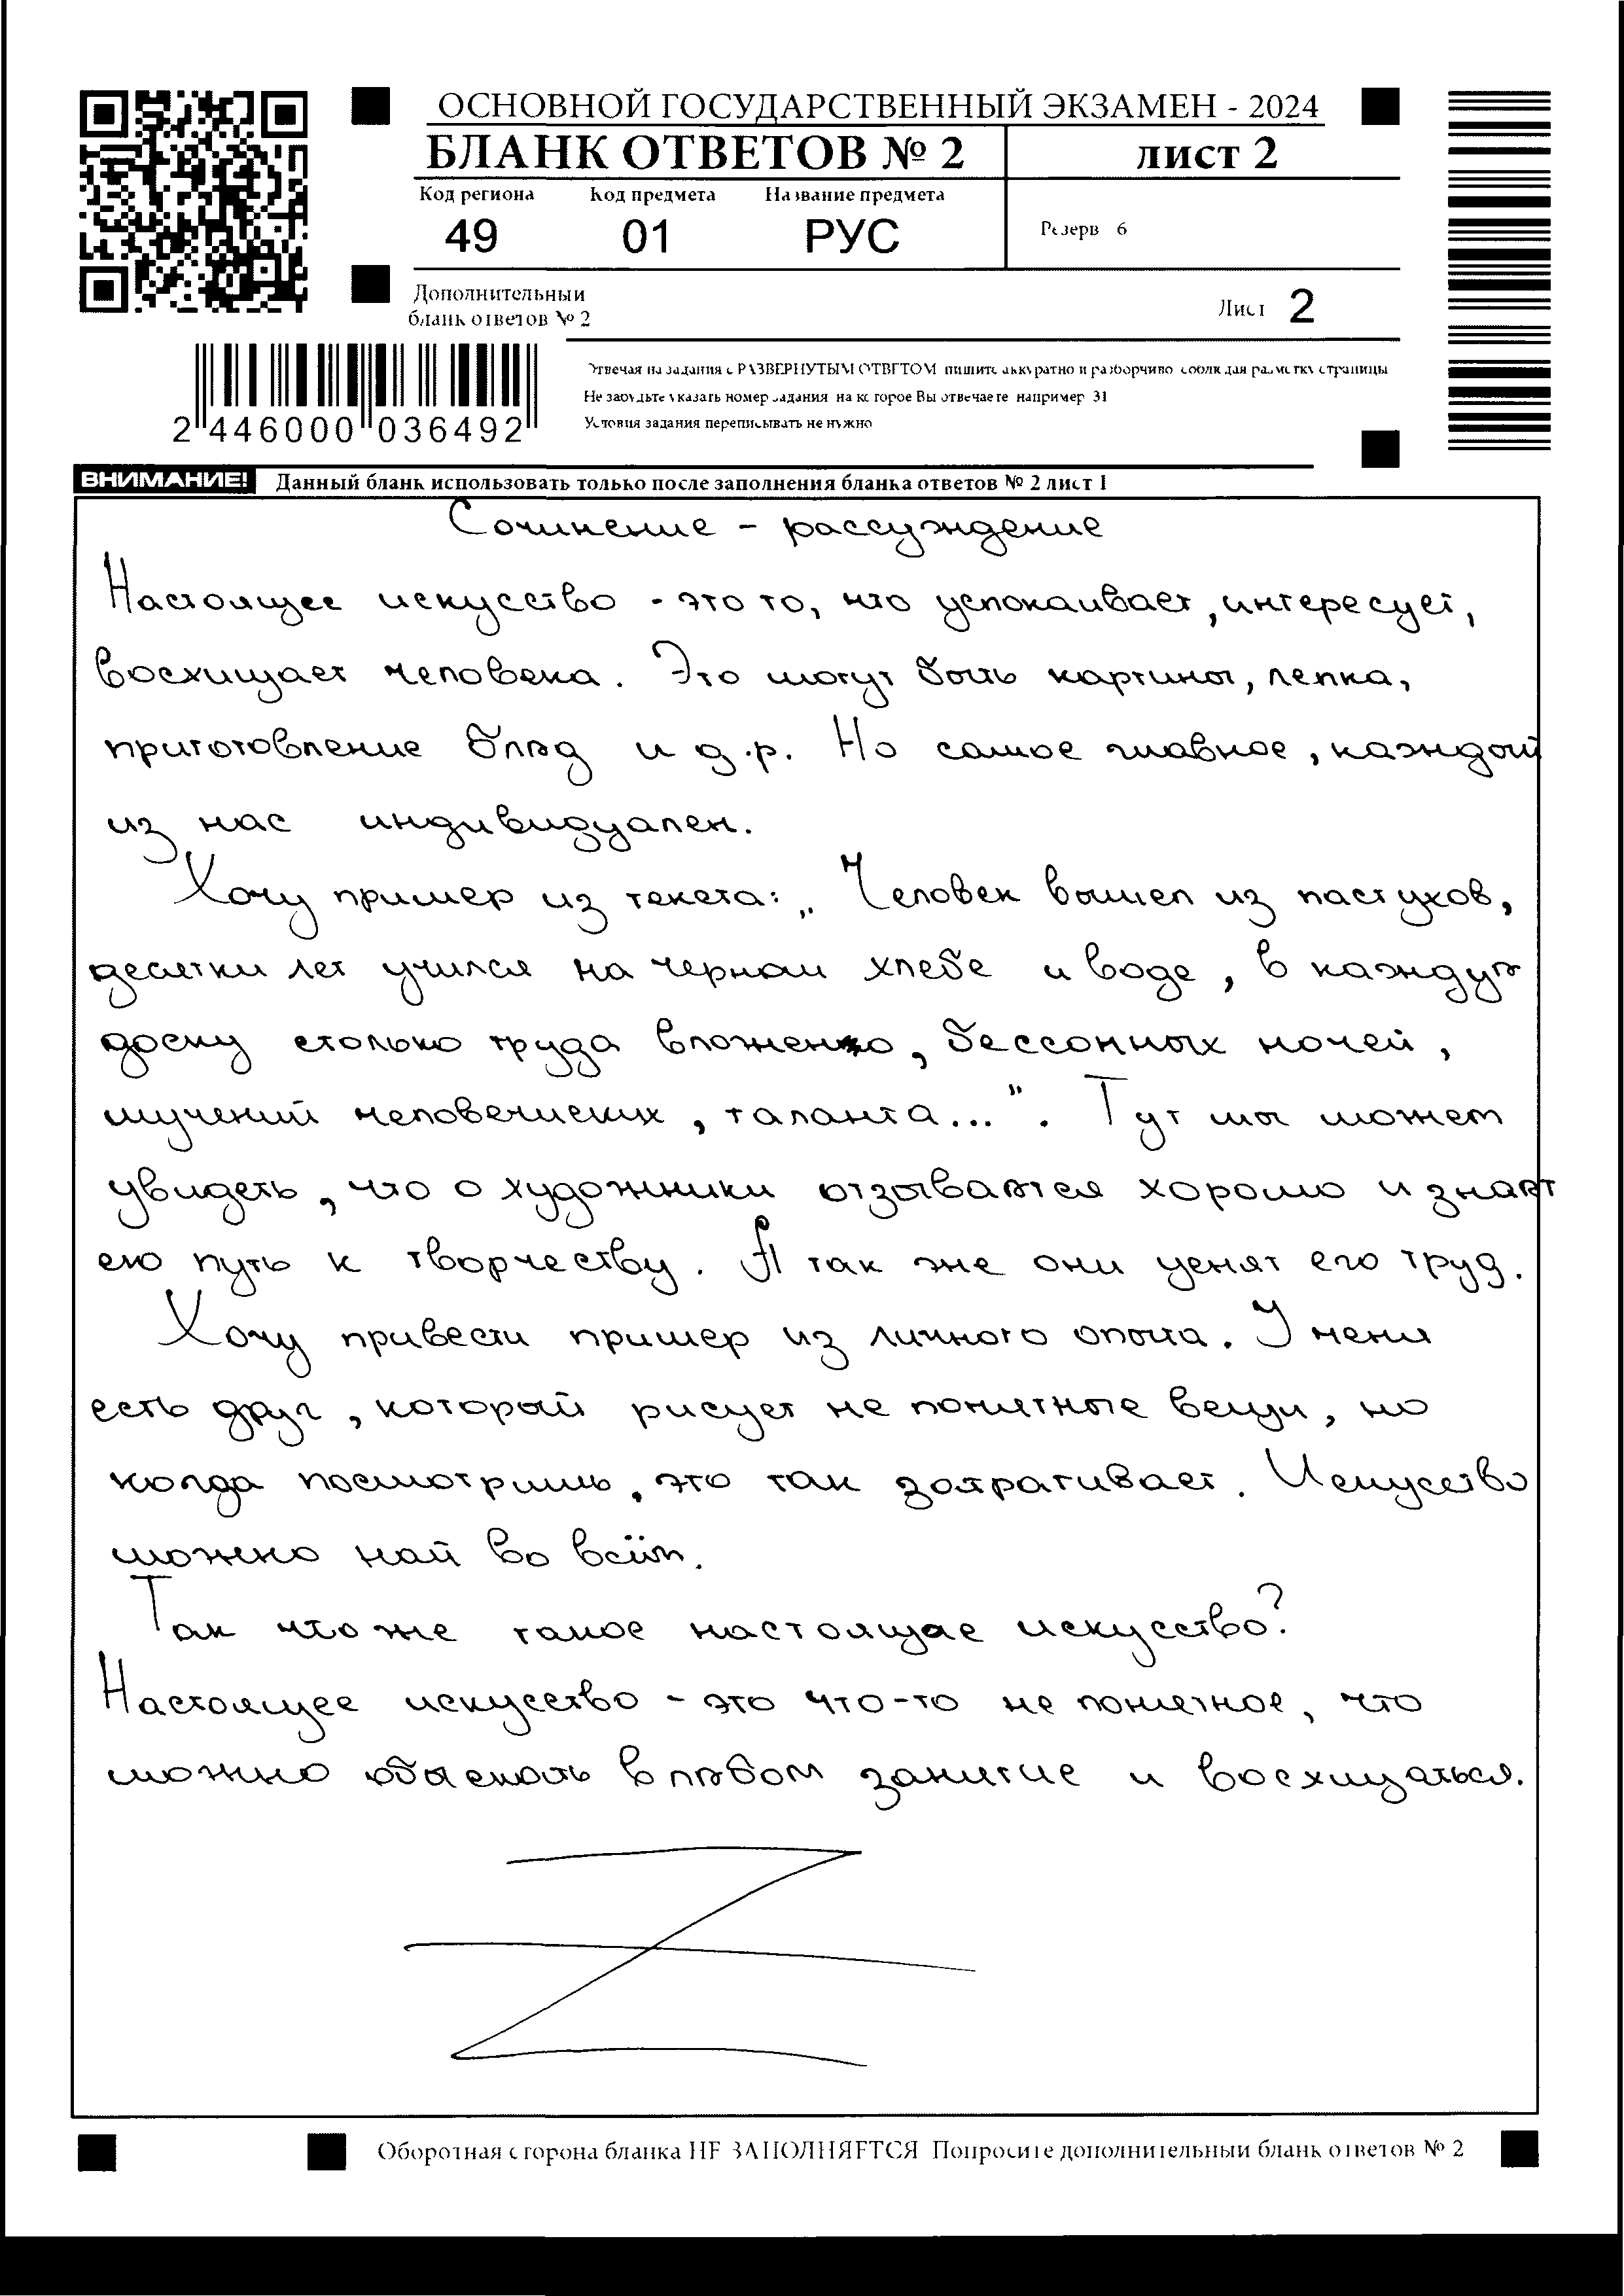 ОСНОВНОЙ ГОСУДАРСТВЕННЫЙ ЭКЗАМЕН - 2024
БЛАНК ОТВЕТОВ № 2 лист 2
Код региона Код предмета Название предмета
49 01 РУС
Резерв 6
Дополнительный
бланк ответов № 2
Лист 2
Отвечая на задания с РАЗВЕРНУТЫМ ОТВЕТОМ пишите аккуратно и разборчиво соблюдая разметку страницы
Не забудьте указать номер задания на которое Вы отвечаете например 31
Условия задания переписывать не нужно
2 446000 036492
ВНИМАНИЕ! Данный бланк использовать только после заполнения бланка ответов № 2 лист 1
Сочинение - рассуждение
Настоящее искусство - это то, что успокаивает, интересует,
восхищает человека. Это могут быть картины, лепка,
приготовление блюд и д.р. Но самое главное, каждый
из нас индивидуален.
Хочу пример из текста: „ Человек вышел из пастухов,
десятки лет учился на черном хлебе и воде, в каждую
доску столько труда вложенно, бессонных ночей,
мучений человеческих, таланта...". Тут мы можем
увидеть, что о художники отзываются хорошо и знают
его путь к творчеству. А так же они ценят его труд.
Хочу привести пример из личного опыта. У меня
есть друг, который рисует не понятные вещи, но
когда посмотришь, это так зотрагивает. Искусство
можно най во всём.
Так что же такое настоящае искусство?
Настоящее искусство - это что-то не понятное, что
можно в любом занятие и восхищаться.
Оборотная сторона бланка НЕ ЗАПОЛНЯЕТСЯ Попросите дополнительный бланк ответов № 2